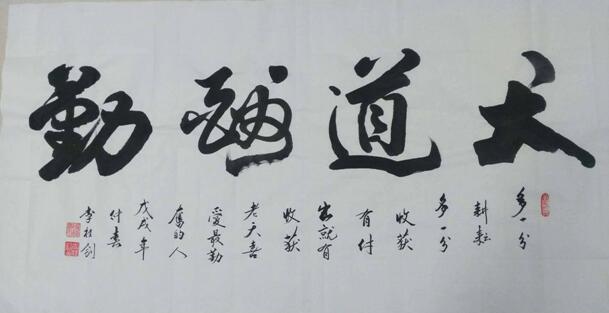 天道酬勤
多一分
耕耘
多一分
收获
有付
出就有
收获
老天喜
爱最勤
奋的人
戊戌年
李